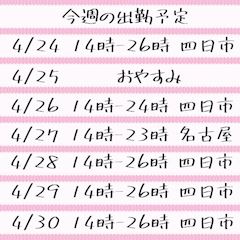 今週の出勤予定
4/24 14時-26時 四日市
4/25 おやすみ
4/26 14時-24時 四日市
4/27 14時-23時 名古屋
4/28 14時-26時 四日市
4/29 14時-26時 四日市
4/30 14時-26時 四日市